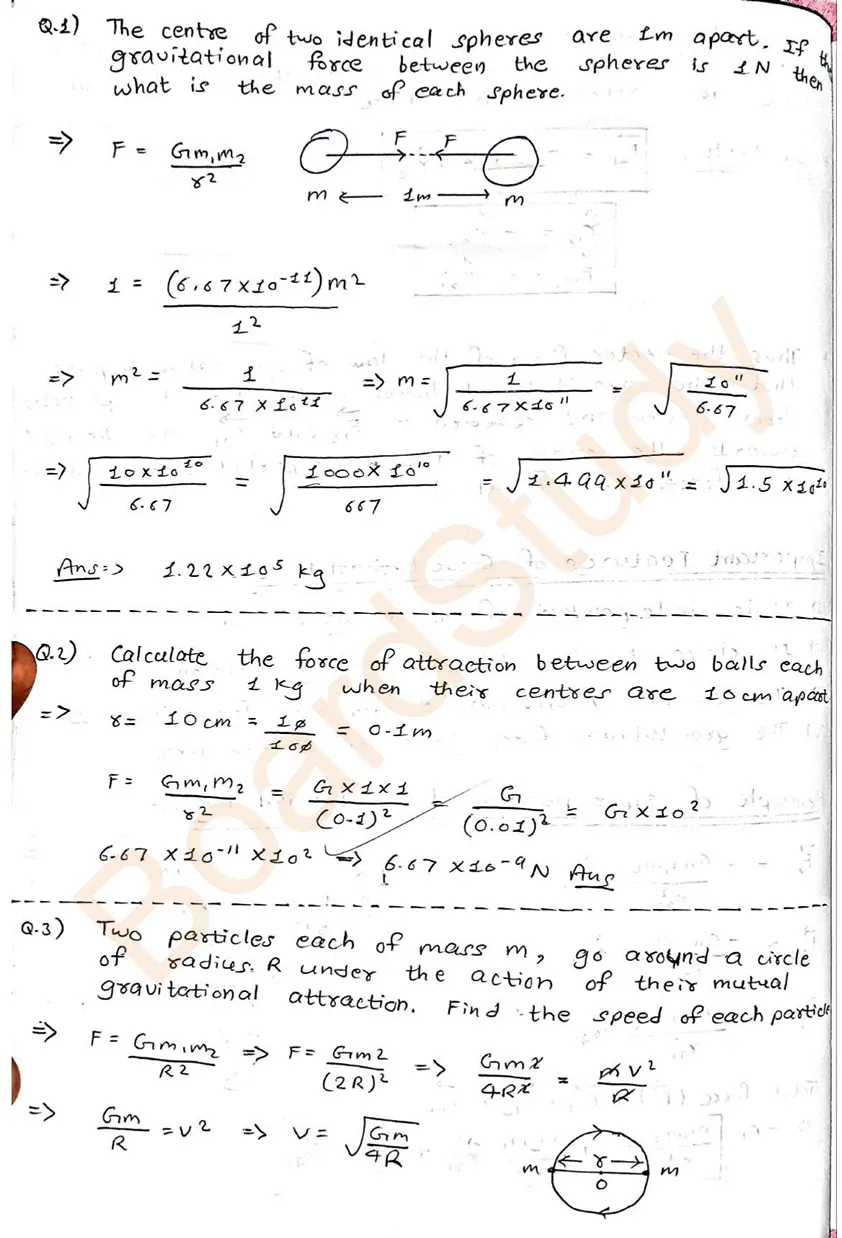 Q.1) The centre of two identical spheres are 1m apart. If the
gravitational force between the spheres is 1N then
what is the mass of each sphere.
=> F = Gm₁m₂/r²
F F
m ← 1m → m
=> 1 = (6.67×10⁻¹¹)m²/1²
=> m² = 1/6.67 × 10¹¹ => m = √(1/6.67×10¹¹) = √(10¹¹/6.67)
=> √(10×10¹⁰/6.67) = √(1000×10¹⁰/667) = √1.499×10¹¹ = √1.5×10¹⁰
Ans => 1.22×10⁵ kg
Q.2) Calculate the force of attraction between two balls each
of mass 1 kg when their centres are 10cm apart
=> r = 10cm = 10/100 = 0.1m
F = Gm₁m₂/r² = G×1×1/(0.1)² = G/(0.01)² = G×10²
6.67 ×10⁻¹¹ ×10² => 6.67 ×10⁻⁹ N Ans
Q.3) Two particles each of mass m, go around a circle
of radius. R under the action of their mutual
gravitational attraction. Find the speed of each particle
=> F = Gm₁m₂/R² => F = Gm2/(2R)² => Gm2/4R2 = mv²/R
=> Gm/R = v² => V = √(Gm/4R)
m ← r → m
O
BoardStudy